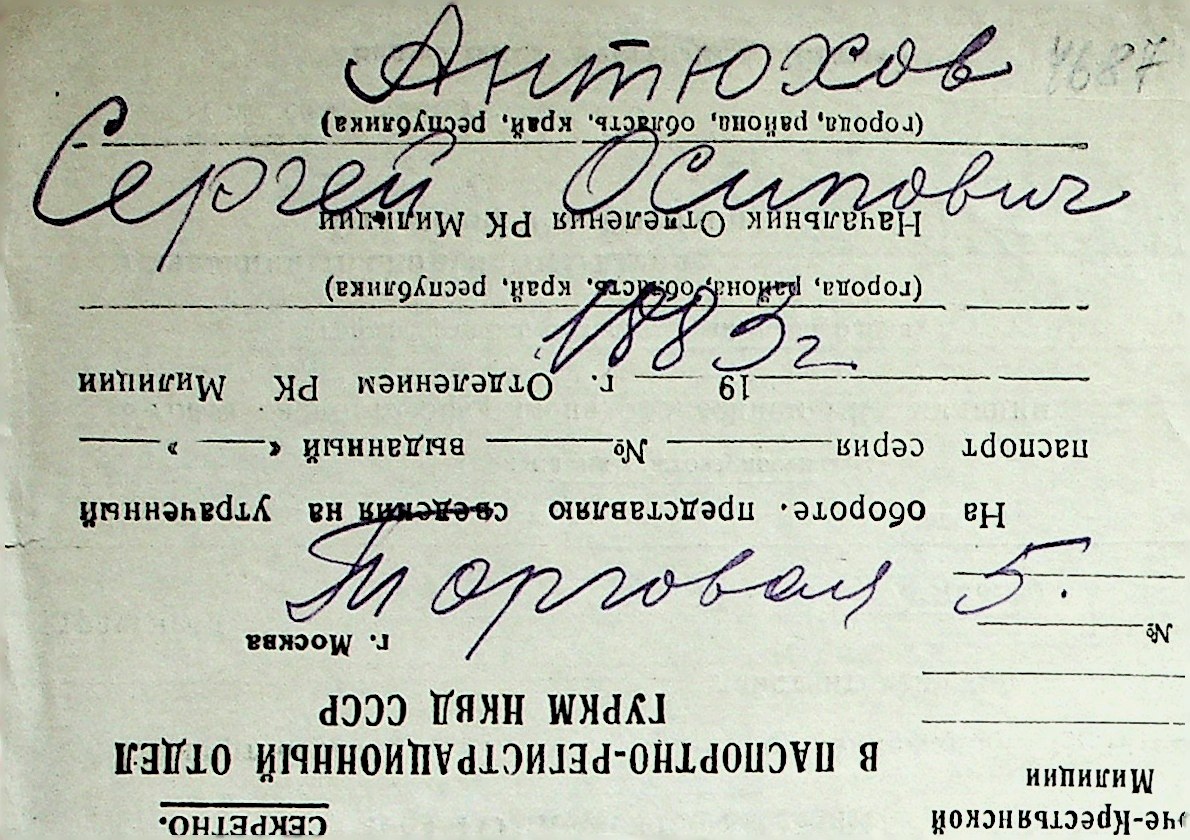 Антюхов 4687
Сергей Осипович
1883 г
Торговая 5.
СЕКРЕТНО.
че-Крестьянской
Милиции
В ПАСПОРТНО-РЕГИСТРАЦИОННЫЙ ОТДЕЛ
ГУРКМ НКВД СССР
г. Москва
№
На обороте. представляю сведения на утраченный
паспорт серия № выданный « »
19 г. Отделением РК Милиции
(города, района, область, край, республика)
Начальник Отделения РК Милиции
(города, района, область, край, республика)